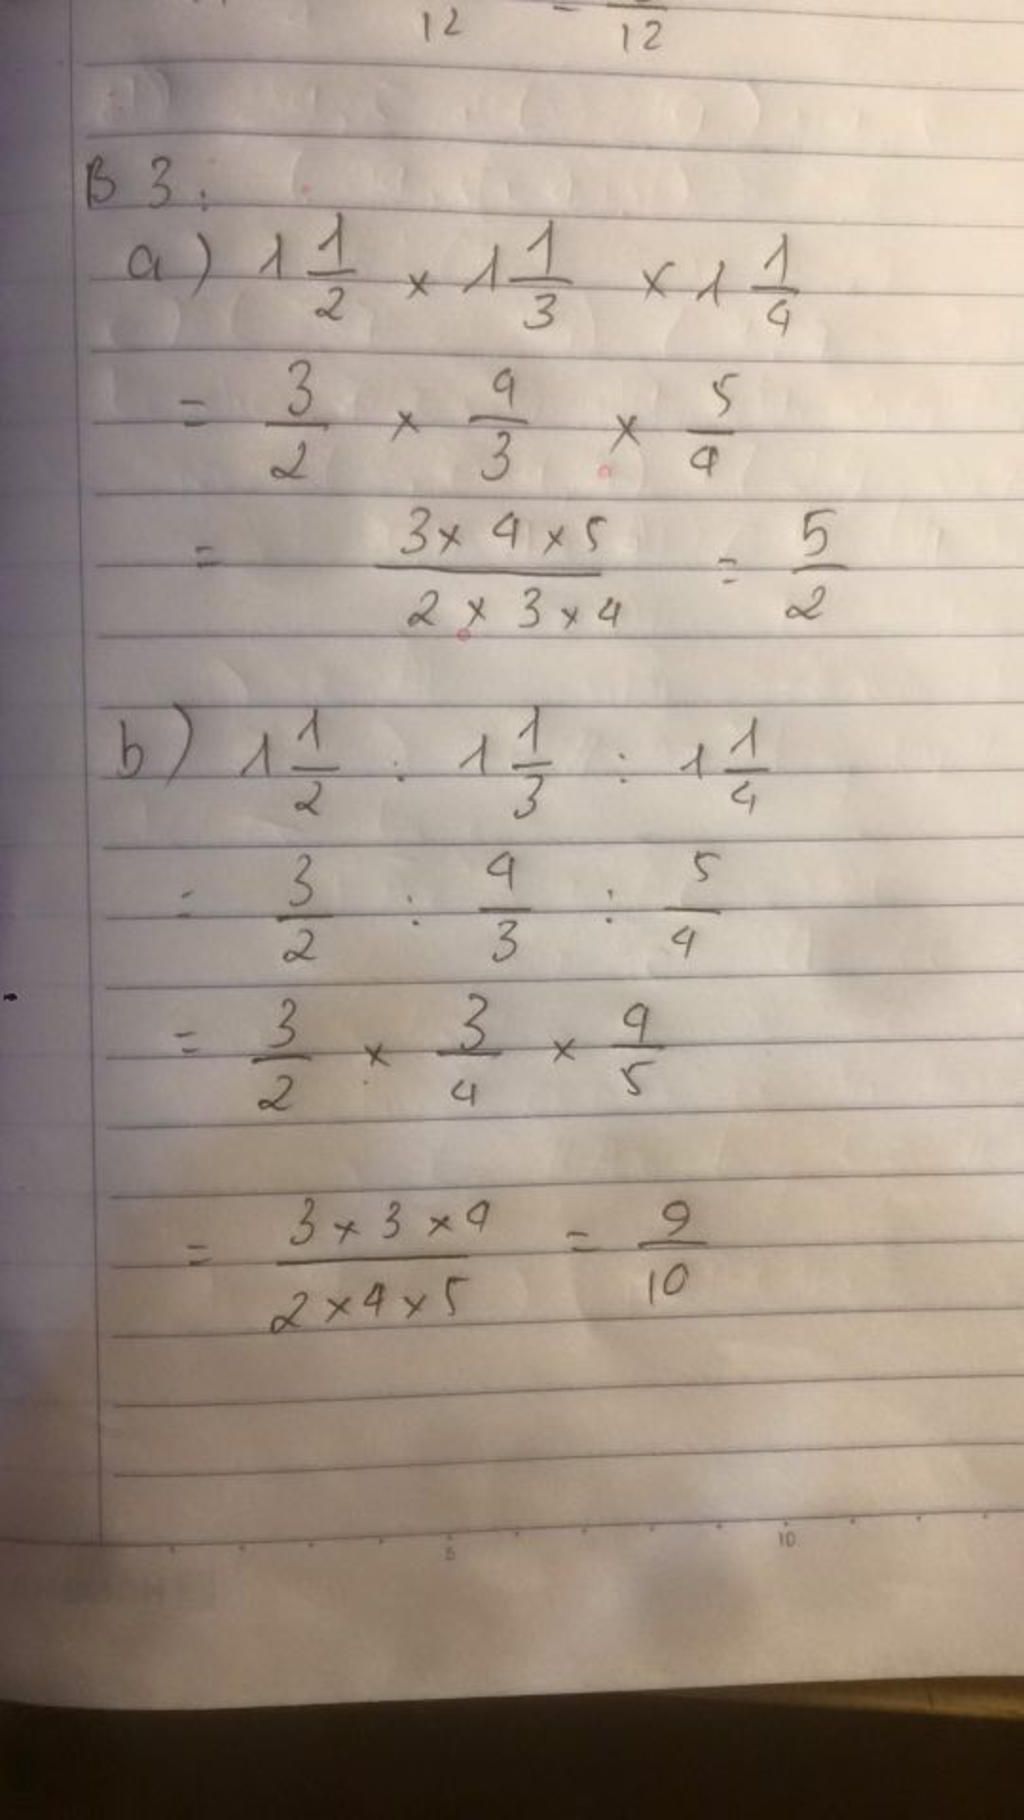 12 = 12
B 3:
a) 1 1/2 × 1 1/3 × 1 1/4
= 3/2 × 4/3 × 5/4
= (3 × 4 × 5)/(2 × 3 × 4) = 5/2
b) 1 1/2 : 1 1/3 : 1 1/4
= 3/2 : 4/3 : 5/4
= 3/2 × 3/4 × 4/5
= (3 × 3 × 4)/(2 × 4 × 5) = 9/10
5 10